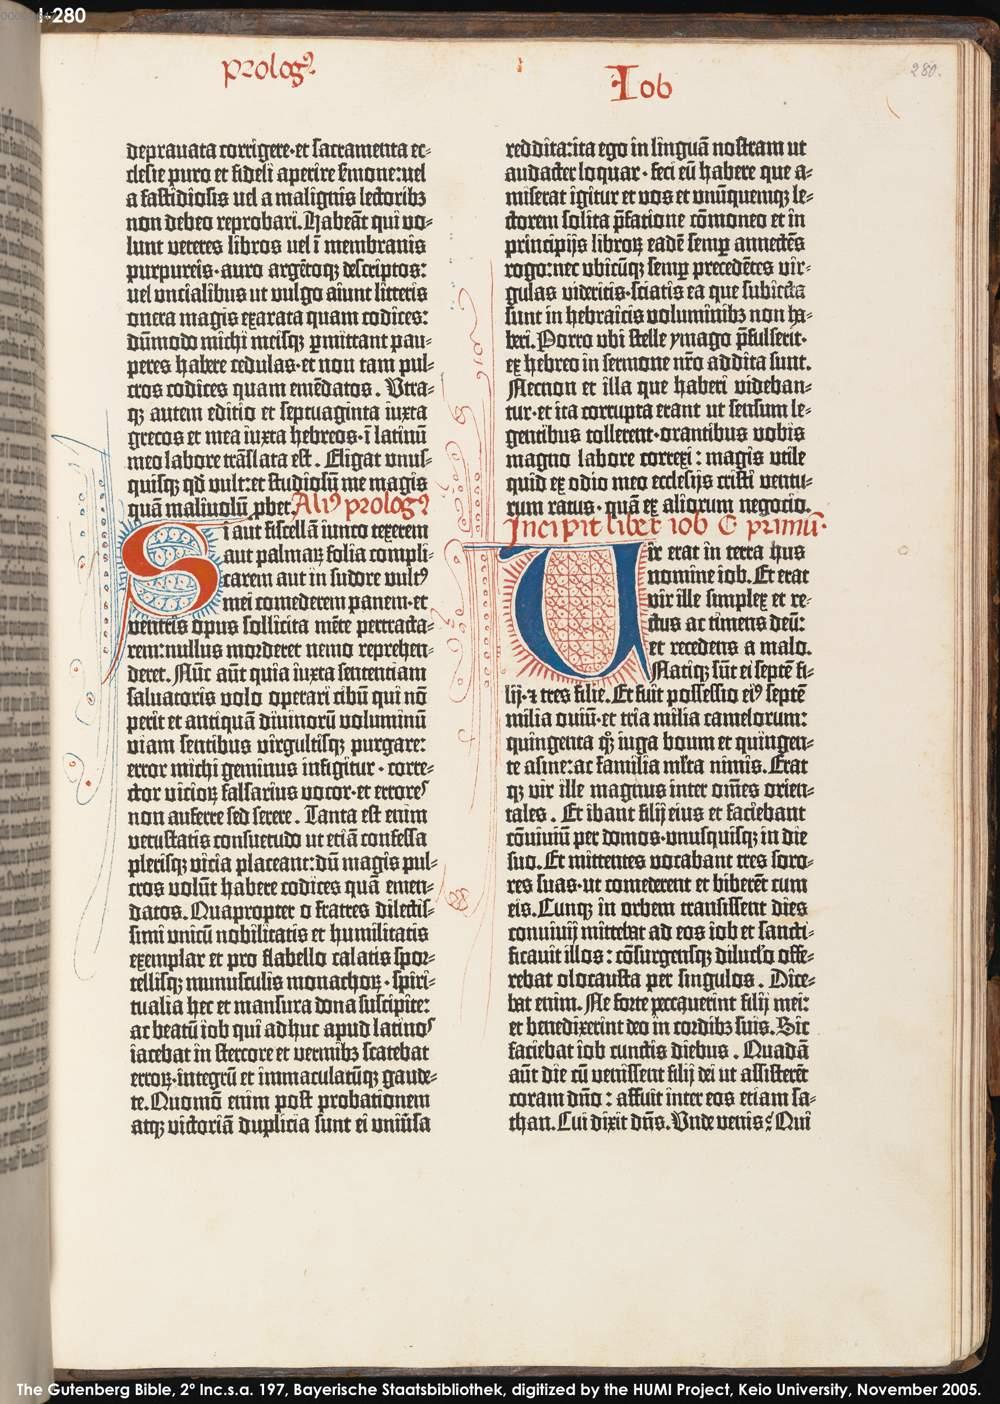 I-280
prologꝰ
Iob
280.
deprauata corrigere·et sacramenta ec-
clesie puro et fideli aperire s̃mone:uel
a fastidiosis uel a malignis lectoribꝫ
non debeo reprobari. Habeāt qui vo-
lunt veteres libros uel ī membranis
purpureis·auro argētoqꝫ descriptos:
uel vncialibus ut vulgo aiunt litteris
onera magis exarata quam codices:
dūmodo michi meisqꝫ ꝑmittant pau-
peres habere cedulas·et non tam pul-
cros codices quam emēdatos. Vtra-
qꝫ autem editio et septuaginta iuxta
grecos et mea iuxta hebreos·ī latinū
meo labore trāslata est. Eligat vnus-
quisqꝫ qd̄ vult:et studiosū me magis
quā maliuolū ꝓbet. Aliꝰ prologꝰ
Si aut fiscellā iunco texerem
aut palmaꝝ folia compli-
carem aut in sudore vultꝰ
mei comederem panem·et
ventris opus sollicita mēte pertracta-
rem:nullus morderet nemo reprehen-
deret. Nūc aūt quia iuxta sententiam
saluatoris volo operari cibū qui nō
perit et antiquā diuinorū voluminū
viam sentibus virgultisqꝫ purgare:
error michi geminus infigitur·corre-
ctor vicioꝝ falsarius vocor·et errores
non auferre sed serere. Tanta est enim
vetustatis consuetudo ut etiā confessa
plerisqꝫ vicia placeant:dū magis pul-
cros volūt habere codices quā emen-
datos. Quapropter o fratres dilectis-
simi vnicū nobilitatis et humilitatis
exemplar et pro flabello calatis spor-
tellisqꝫ munusculis monachoꝝ·spiri-
tualia hec et mansura dona suscipite:
ac beatū iob qui adhuc apud latinos
iacebat in stercore et vermibꝫ scatebat
erroꝝ·integrū et immaculatūqꝫ gaude-
te. Quomō enim post probationem
atqꝫ victoriā duplicia sunt ei vniūsa
reddita:ita ego in linguā nostram ut
audacter loquar·feci eū habere que a-
miserat igitur et vos et vnūquemqꝫ le-
ctorem solita p̄fatione cōmoneo et in
principijs libroꝝ eadē semꝑ annectēs
rogo:nec vbicūqꝫ semꝑ precedētes vir-
gulas videritis·sciatis ea que subiecta
sunt in hebraicis voluminibꝫ non ha-
beri. Porro vbi stelle ymago p̄fulserit·
ex hebreo in sermone nr̄o addita sunt.
Necnon et illa que haberi videban-
tur·et ita corrupta erant ut sensum le-
gentibus tollerent·orantibus vobis
magno labore correxi: magis vtile
quid ex odio meo ecclesijs cristi ventu-
rum ratus·quā ex aliorum negocio.
Incipit liber iob C primū·
Uir erat in terra hus
nomine iob. Et erat
vir ille simplex et re-
ctus ac timens deū:
et recedens a malo.
Natiqꝫ sūt ei septē fi-
lij·⁊ tres filie. Et fuit possessio eiꝰ septē
milia ouiū·et tria milia camelorum:
quingenta qꝫ iuga boum et quingen-
te asine:ac familia ml̄ta nimis. Erat
qꝫ vir ille magnus inter om̄es orien-
tales. Et ibant filij eius et faciebant
cōuiuiū per domos·vnusquisqꝫ in die
suo. Et mittentes vocabant tres soro-
res suas·ut comederent et biberēt cum
eis. Cunqꝫ in orbem transissent dies
conuiuij mittebat ad eos iob et sancti-
ficauit illos: cōsurgensqꝫ diluc̄o offe-
rebat olocausta per singulos. Dice-
bat enim. Ne forte peccauerint filij mei:
et benedixerint deo in cordibꝫ suis. Sic
faciebat iob cunctis diebus. Quadā
aūt die cū venissent filij dei ut assisterēt
coram dn̄o: affuit inter eos etiam sa-
than. Cui dixit dn̄s. Vnde venis? Qui
The Gutenberg Bible, 2° Inc.s.a. 197, Bayerische Staatsbibliothek, digitized by the HUMI Project, Keio University, November 2005.